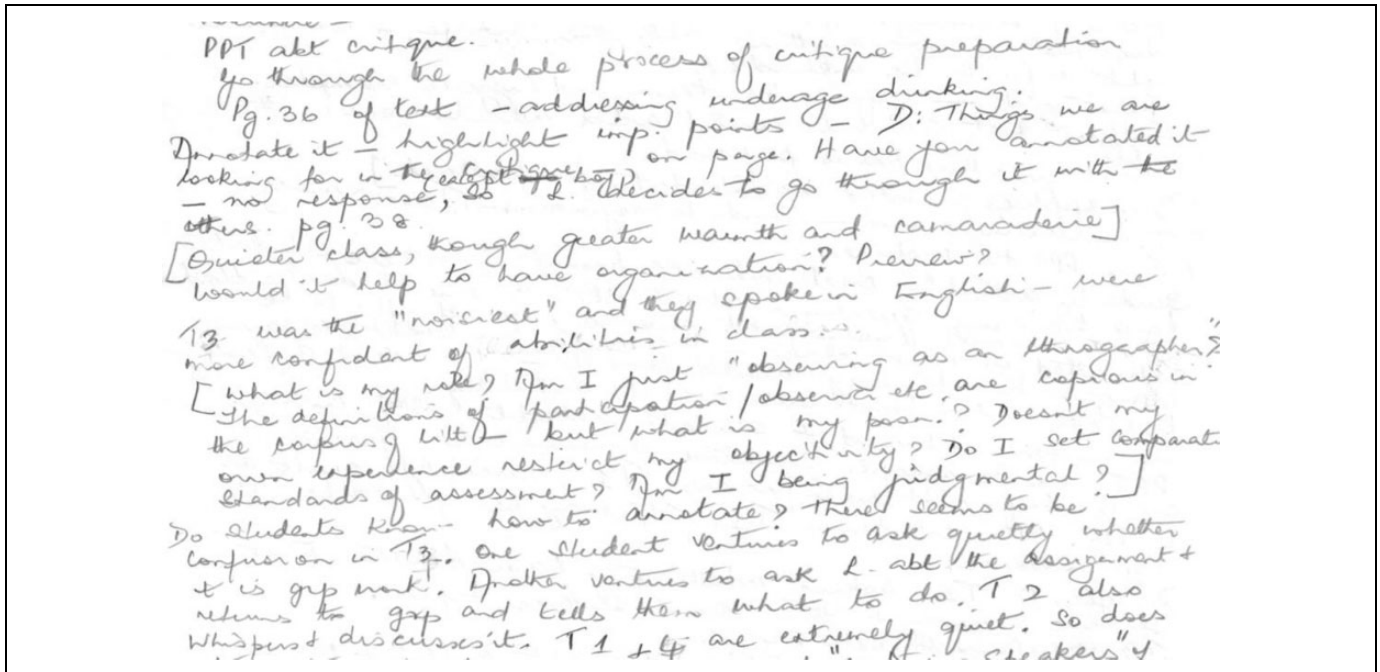 PPT abt critique.
Go through the whole process of critique preparation
Pg. 36 of text - addressing underage drinking.
Annotate it - highlight imp. points - D: Things we are
looking for in the on page. Have you annotated it
- no response, so L. decides to go through it with the
others. pg. 38.
[Quieter class, though greater warmth and camaraderie]
Would it help to have organization? Preview?
T3 was the "noisiest" and they spoke in English - were
more confident of abilities in class...
[What is my role? Am I just "observing as an ethnographer?"
The definitions of participation/observer etc. are copious in
the corpus of litt - but what is my posn.? Doesn't my
own experience restrict my objectivity? Do I set comparat
standards of assessment? Am I being judgmental?]
Do students know how to annotate? There seems to be
confusion in T3. One student ventures to ask quietly whether
it is grp work. Another ventures to ask L. abt the assignment +
returns to grp and tells them what to do. T2 also
whispers + discusses it. T1 + 4 are extremely quiet. So does
speakers" of